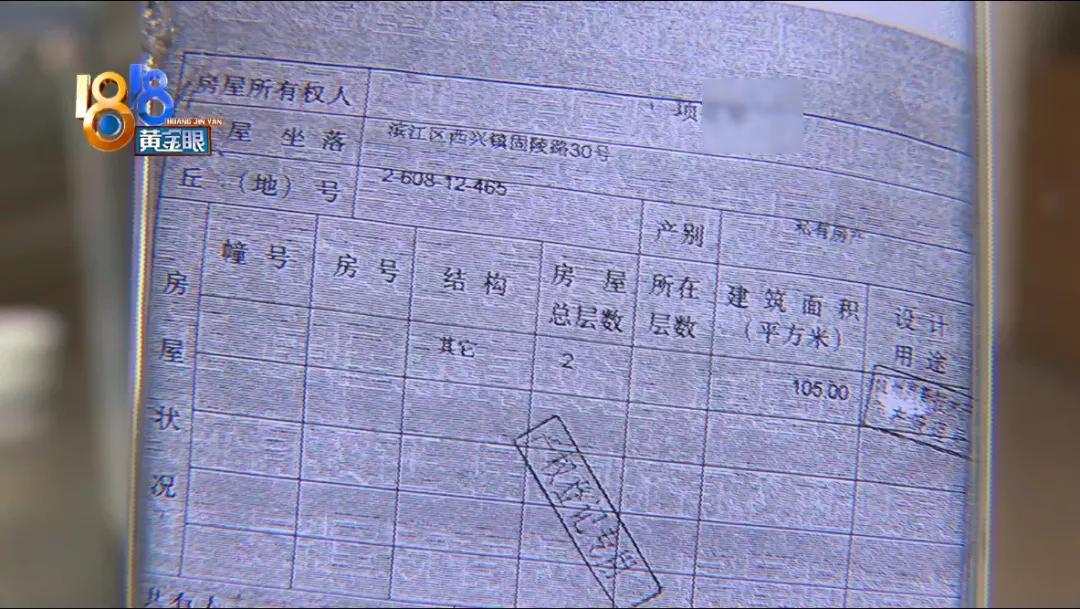 1818
HUANG JIN YAN
黄金眼
房屋所有权人 项
屋坐落 滨江区西兴镇固陵路30号
丘（地）号 2-608-12-465
产别 私有房产
房屋状况
幢号 房号 结构 房屋总层数 所在层数 建筑面积（平方米） 设计用途
其它 2 105.00
权登记专用
共有人